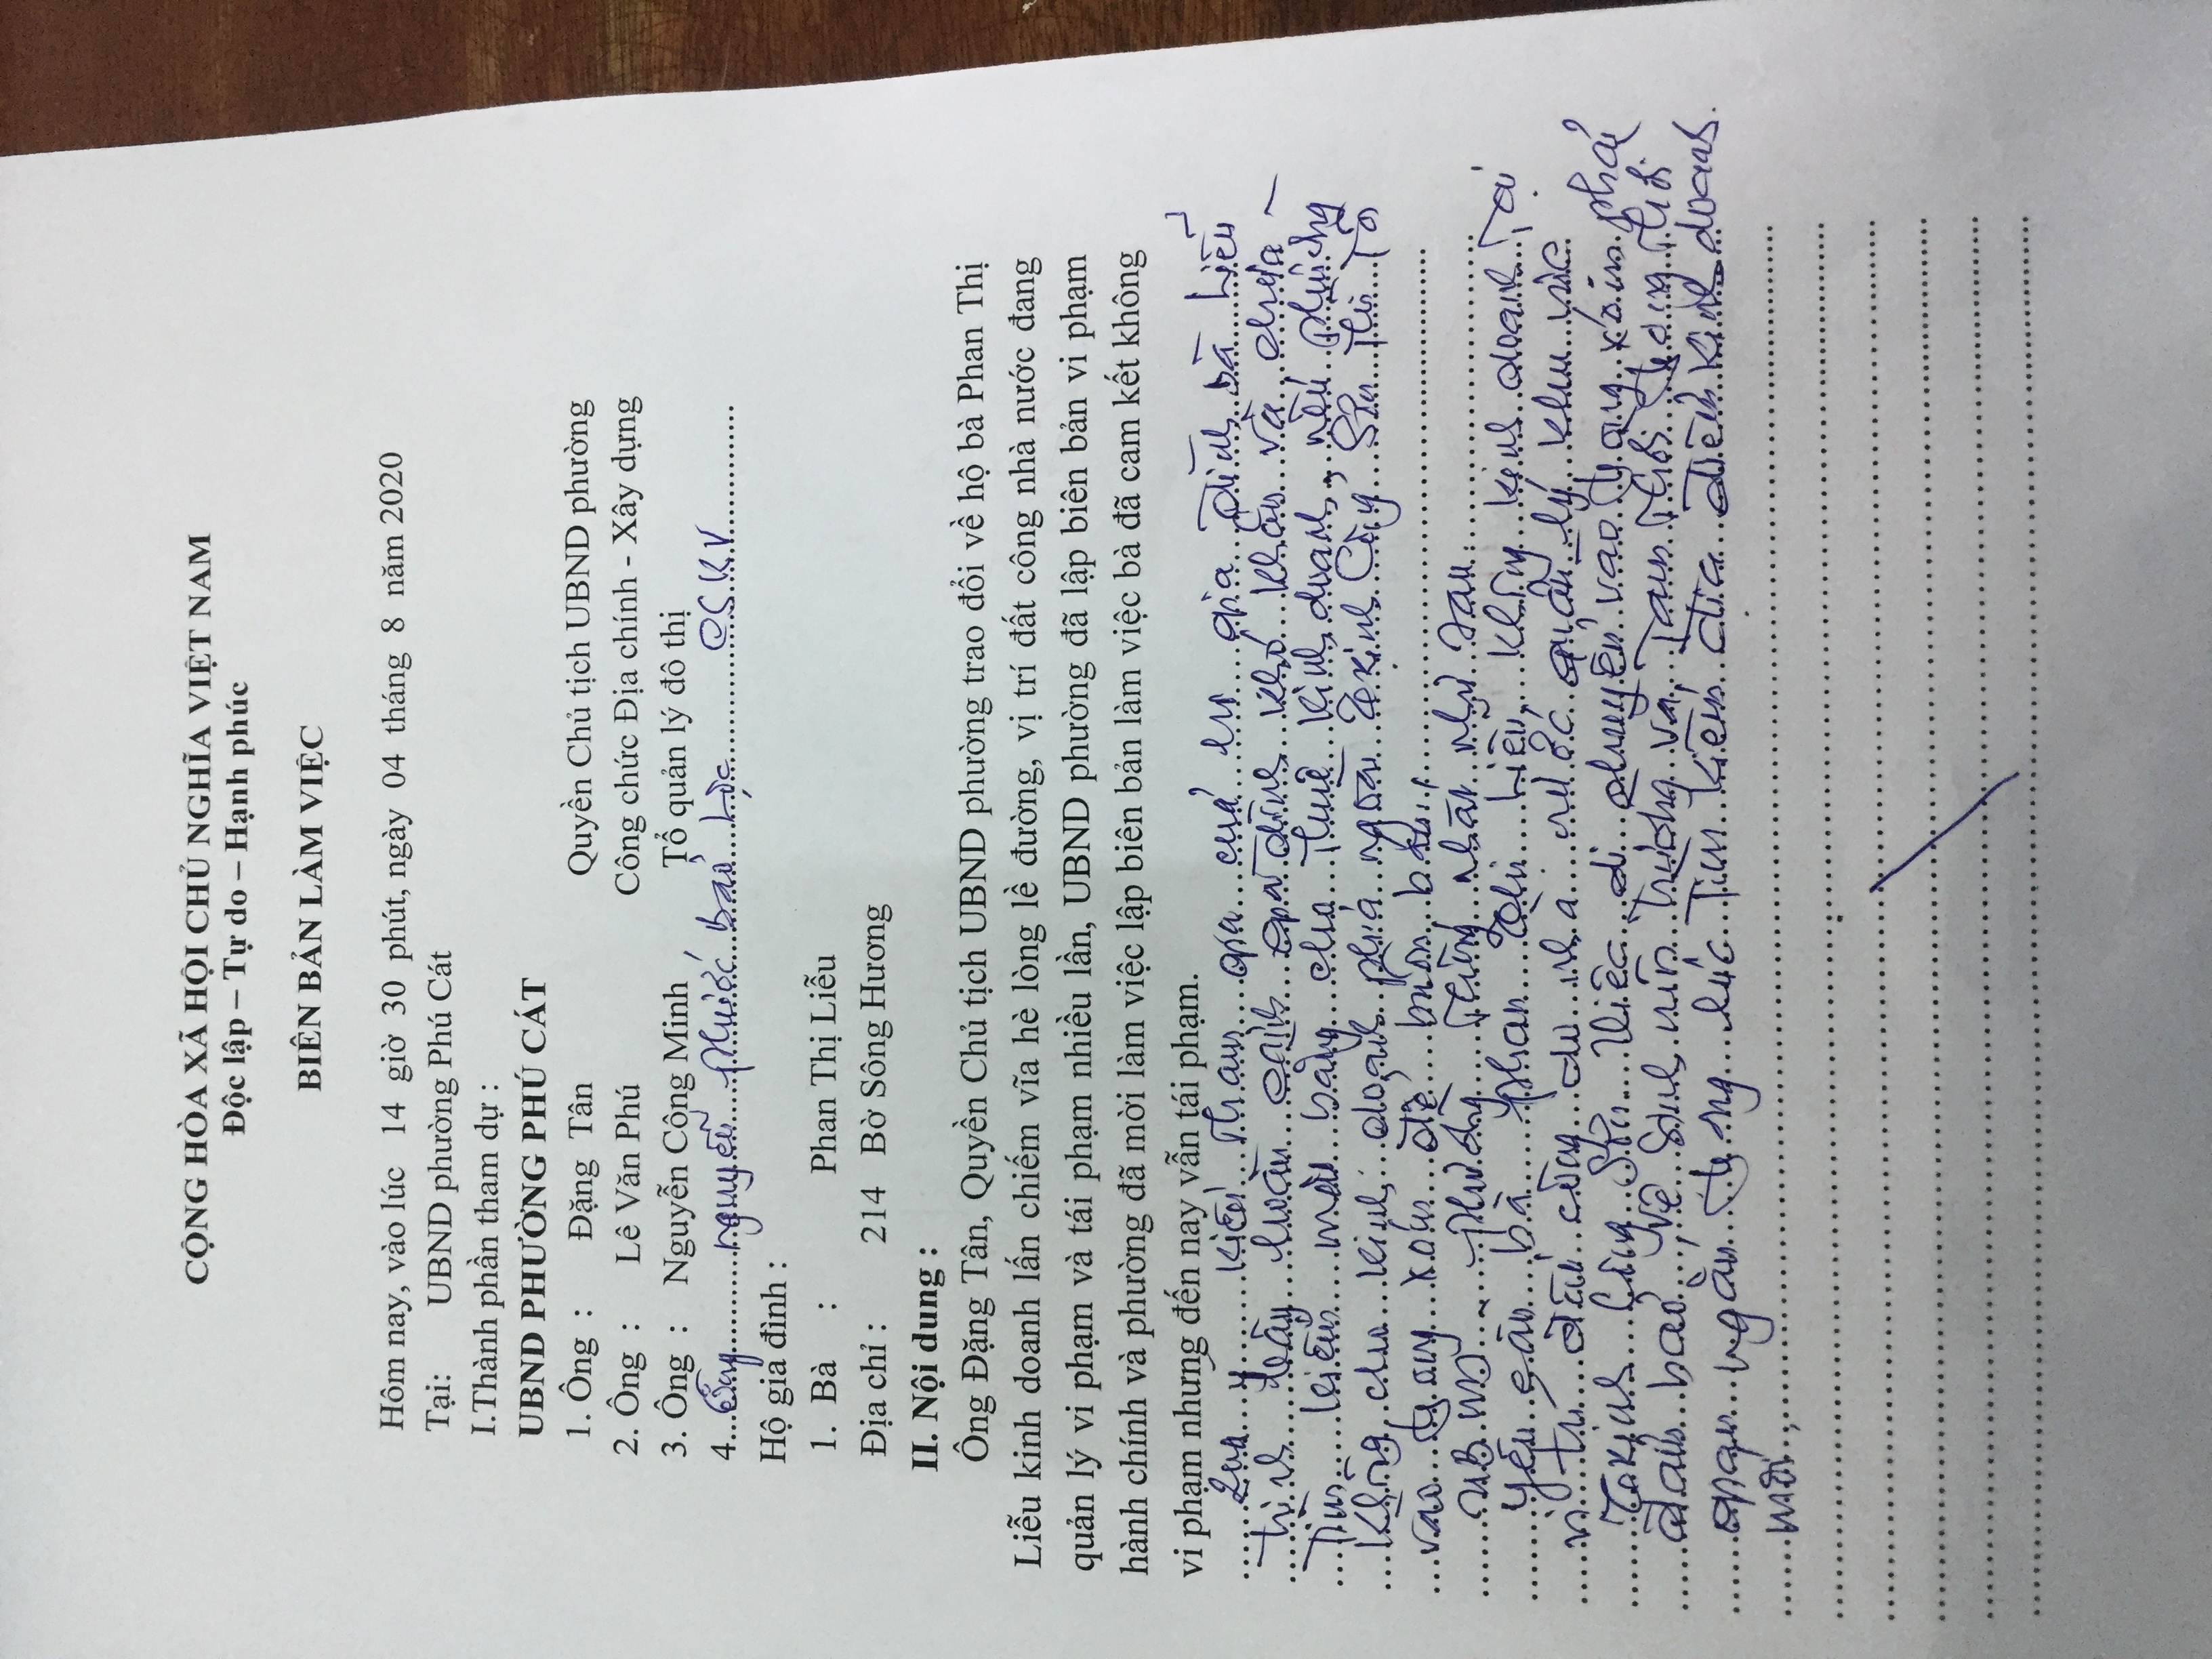 CỘNG HÒA XÃ HỘI CHỦ NGHĨA VIỆT NAM
Độc lập – Tự do – Hạnh phúc
BIÊN BẢN LÀM VIỆC
Hôm nay, vào lúc 14 giờ 30 phút, ngày 04 tháng 8 năm 2020
Tại: UBND phường Phú Cát
I.Thành phần tham dự :
UBND PHƯỜNG PHÚ CÁT
1. Ông : Đặng Tân Quyền Chủ tịch UBND phường
2. Ông : Lê Văn Phú Công chức Địa chính - Xây dựng
3. Ông : Nguyễn Công Minh Tổ quản lý đô thị
4. Ông nguyễn Phước bảo Lộc CSKV
Hộ gia đình :
1. Bà : Phan Thị Liễu
Địa chỉ : 214 Bờ Sông Hương
II. Nội dung :
Ông Đặng Tân, Quyền Chủ tịch UBND phường trao đổi về hộ bà Phan Thị
Liễu kinh doanh lấn chiếm vĩa hè lòng lề đường, vị trí đất công nhà nước đang
quản lý vi phạm và tái phạm nhiều lần, UBND phường đã lập biên bản vi phạm
hành chính và phường đã mời làm việc lập biên bản làm việc bà đã cam kết không
vi phạm nhưng đến nay vẫn tái phạm.
kiến Tham gia của gia đình bà Liễu
trình bày hoàn cảnh gia đình khó khăn và chưa
Tìm kiếm mặt bằng cho Thuê kinh doanh, nếu phường
không cho kinh doanh phía
vào xóm để buôn bán
UBND Phường Thống nhất như sau
Yêu cầu bà Phan Thị Liễu, không kinh doanh Tại
vị trí đất công do nhà nước quản lý khu vực
việc di chuyển vào xóm phải
đảm bảo vệ sinh môi trường và Tạm Thời Thời
gian ngắn lúc Tìm kiếm địa điểm kinh doanh
mới